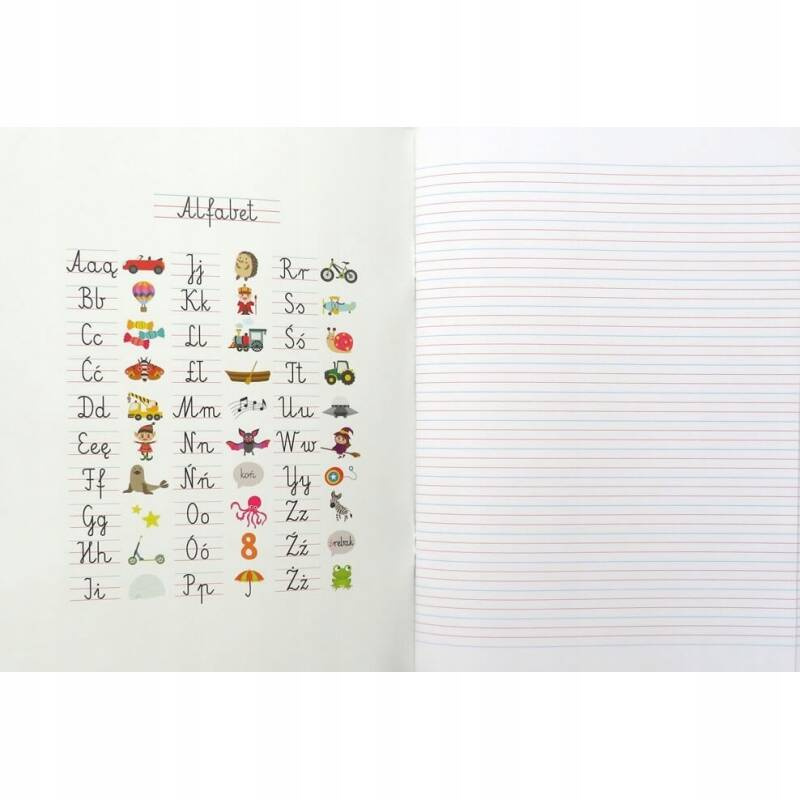 Alfabet
Aaą
Bb
Cc
Ćć
Dd
Eeę
Ff
Gg
Hh
Ii
Jj
Kk
Ll
Łł
Mm
Nn
Ńń
koń
Oo
Óó
8
Pp
Rr
Ss
Śś
Tt
Uu
Ww
Yy
Zz
Źź
źrebak
Żż